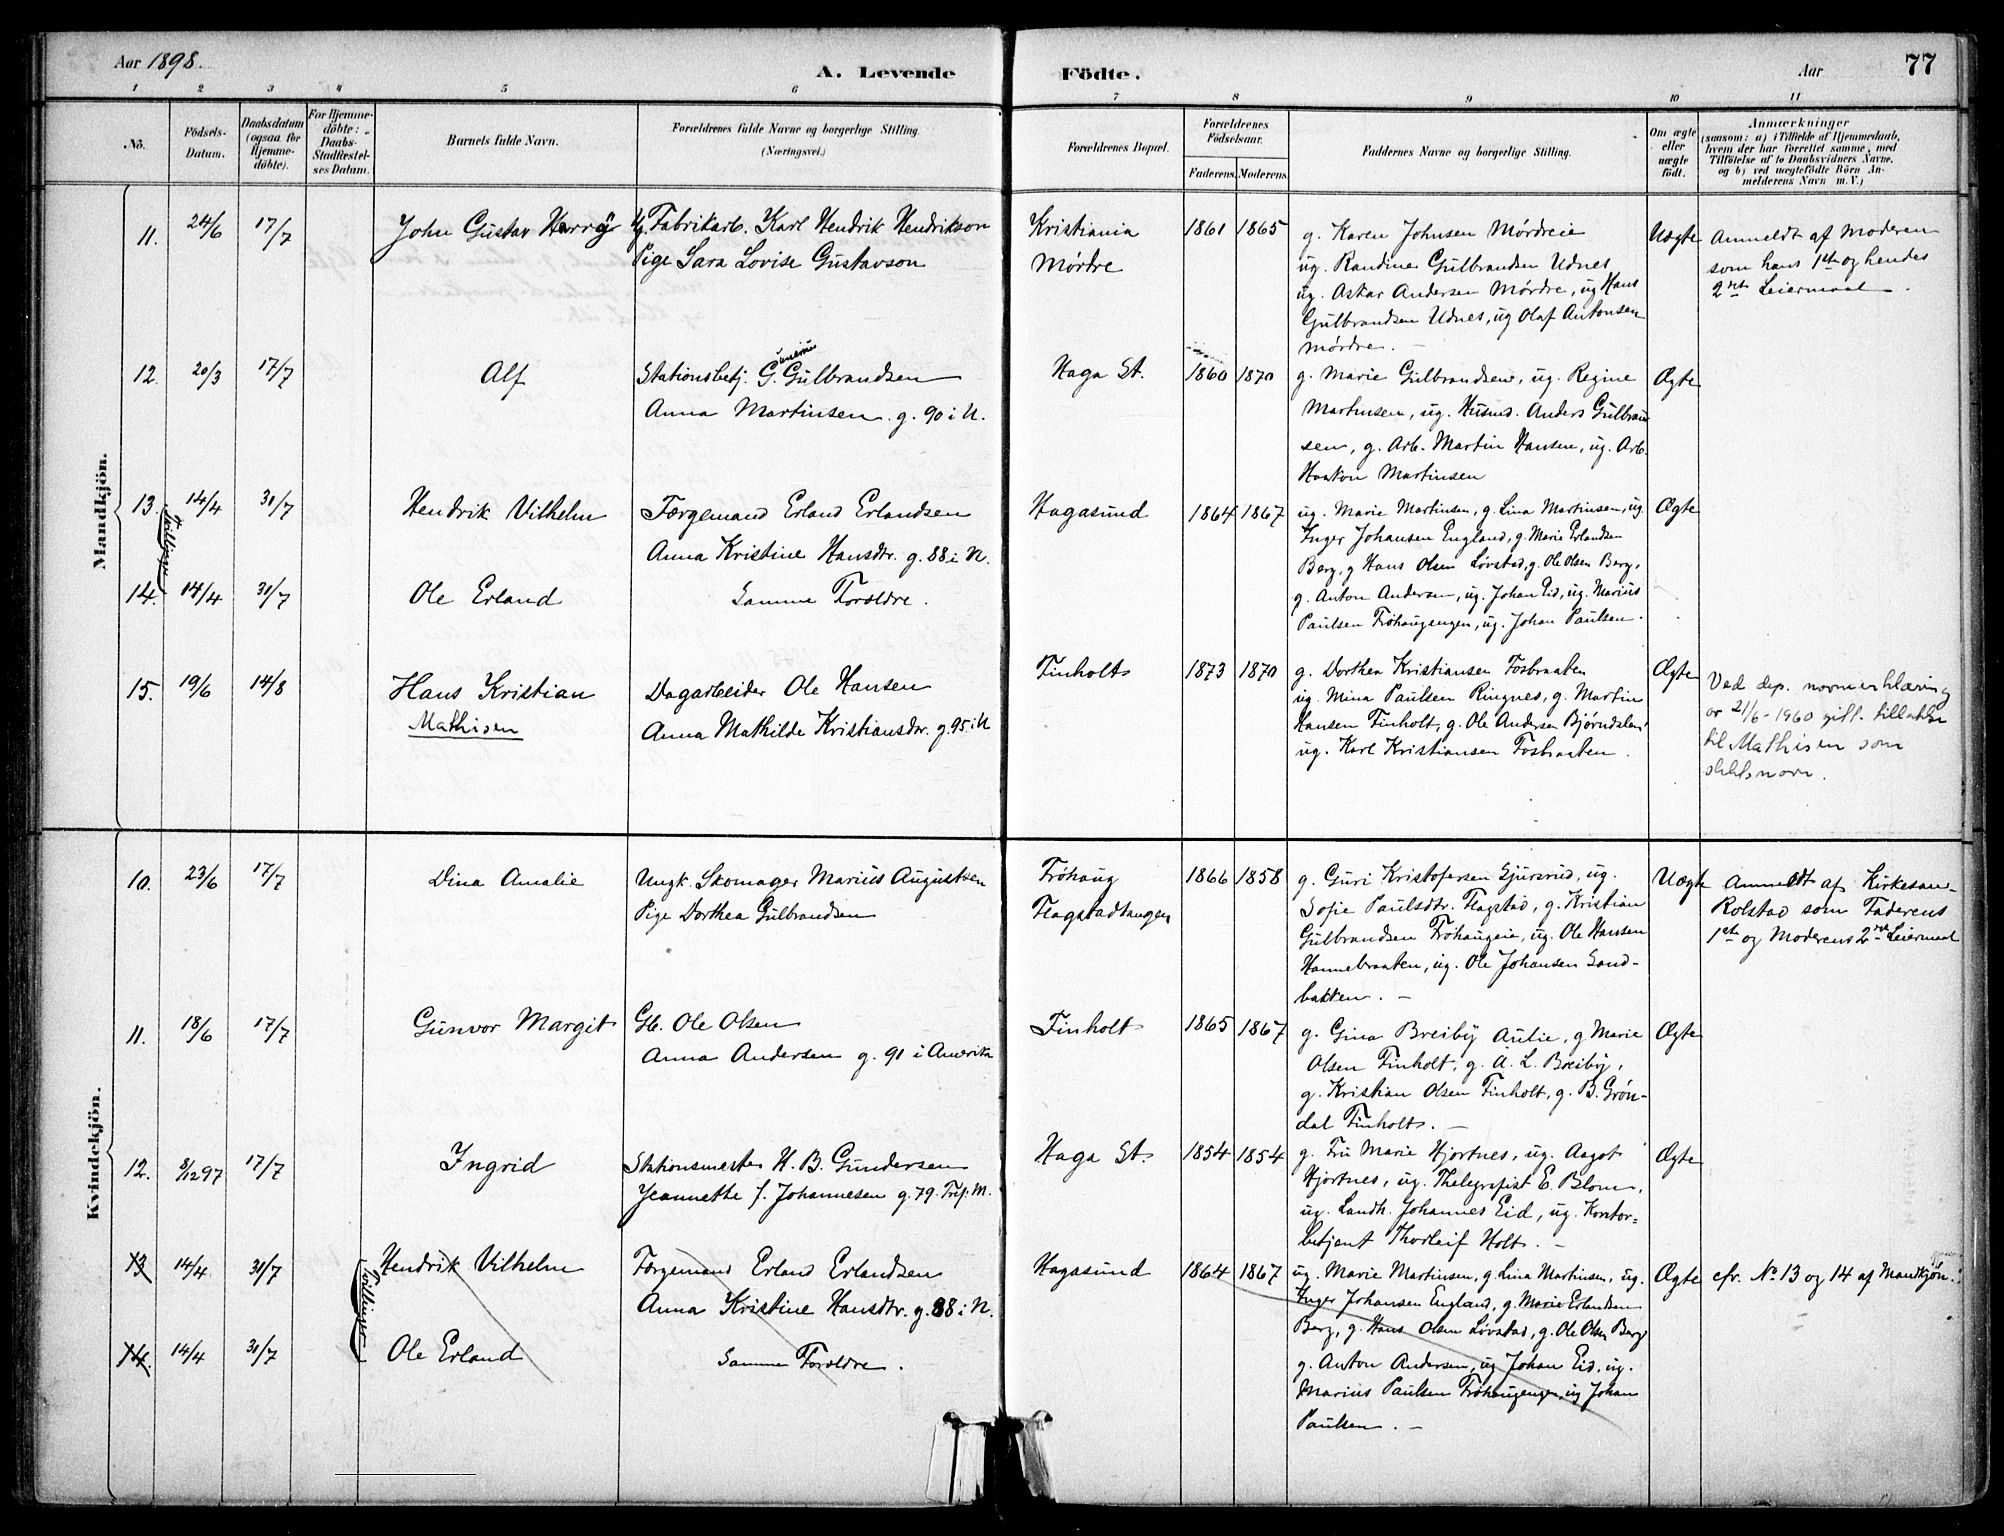 Aar 1898.
A. Levende Födte.
Aar
77
1 2 3 4 5 6 7 8 9 10 11
No.
Födsels-Datum.
Daabsdatum (ogsaa for Hjemme-döbte).
For Hjemme-döbte: Daabs-Stadfæstel-ses Datum.
Barnets fulde Navn.
Forældrenes fulde Navne og borgerlige Stilling.
(Næringsvei.)
Forældrenes Bopæl.
Forældrenes Födselsaar.
Faderens. Moderens.
Faddernes Navne og borgerlige Stilling.
Om ægte eller uægte födt.
Anmærkninger
(saasom: a) i Tilfælde af Hjemmedaab, hvem der har forrettet samme, med Tilföielse af to Daabsvidners Navne, og b) ved uægtefödte Börn An-melderens Navn m. V.)
Mandkjön.
11. 24/6 17/7 John Gustav Harry
Ug. Fabrikarb. Karl Hendrik Hendrikson
Pige Sara Lovise Gustavson
Kristiania
Mørdre
1861 1865
g. Karen Johnsen Mørdreie
ug. Randine Gulbrandsen Udnes
ug. Askar Andersen Mørdre, ug Hans
Gulbrandsen Udnes, ug Olaf Antonsen
Mørdre. -
Uægte
Anmeldt af Moderen
som hans 1ste og hendes
2net Leiermaal.
12. 20/3 17/7 Alf
Stationsbetj. G. Gulbrandsen
Anna Martinsen. g. 90 i N.
Haga St. 1860 1870
g. Marie Gulbrandsen, ug. Regine
Martinsen, ug. Husmd. Anders Gulbrand
sen, g. Arb. Martin Hansen, ug. Arb.
Haakon Martinsen
Ægte
13. 14/4 31/7 Hendrik Vilhelm
Tvillinger
Færgemand Erland Erlandsen
Anna Kristine Hansdtr. g. 88 i N.
Hagasund 1864 1867
ug. Marie Martinsen, g. Lina Martinsen, ug.
Inger Johansen England, g. Marie Erlandsen
Berg, g Hans Olsen Løvstad, g. Ole Olsen Berg,
g. Anton Andersen, ug. Johan Eid, ug. Marius
Paulsen Frøhaugengen, ug. Johan Paulsen.
Ægte
14. 14/4 31/7 Ole Erland
Samme Forældre.
15. 19/6 14/8 Hans Kristian
Mathisen
Dagarbeider Ole Hansen
Anna Mathilde Kristiansdtr. g. 95 i N
Finholt 1873 1870
g. Dorthea Kristiansen Fosbraaten
ug. Mina Paulsen Ringnes, g. Martin
Hansen Finholt, g. Ole Andersen Bjørndalen,
ug. Karl Kristiansen Fosbraaten.
Ægte
Ved dep. navneerklæring
av 21/6-1960 gitt tillatelse
til Mathisen som
slektsnavn.
Kvindekjön.
10. 23/6 17/7 Dina Amalie
Ungk. Skomager Marius Augustsen
Pige Dorthea Gulbrandsen
Frøhaug
Flagstadhaugen
1866 1858
g. Guri Kristofersen Gjursrud, ug.
Sofie Paulsdtr. Flagstad, g. Kristian
Gulbrandsen Frøhaugeie, ug. Ole Hansen
Hannebraaten, ug. Ole Johansen Sand-
bakken. -
Uægte
Anmeldt af Kirkesan-
Rolstad som Faderens
1ste og Moderens 2net Leiermaal
11. 18/6 17/7 Gunvor Margit
Gb. Ole Olsen
Anna Andersen g. 91 i Amerika
Finholt 1865 1867
g. Gina Breiby Aulie, g Marie
Olsen Finholt, g. A. L. Breiby,
g. Kristian Olsen Finholt, g. B. Grøn-
dal Finholt. -
Ægte
12. 8/12 97 17/7 Ingrid
Stationsmester H. B. Gundersen
Jeannette f. Johannesen g. 79. Tref. M.
Haga St. 1854 1854
g. Fru Marie Hjortnes, ug. Aagot
Hjortnes, ug. Thelegrafist E. Blom,
ug. Landh. Johannes Eid, ug. Kontor=
betjent Thorleif Holt. -
Ægte
13. 14/4 31/7 Hendrik Vilhelm
Tvillinger
Færgemand Erland Erlandsen
Anna Kristine Hansdtr. g. 88 i N.
Hagasund 1864 1867
ug. Marie Martinsen, g. Lina Martinsen, ug.
Inger Johansen England, g. Marie Erlandsen
Berg, g. Hans Olsen Løvstad, g. Ole Olsen Berg
g. Anton Andersen, ug Johan Eid, ug.
Marius Paulsen Frøhaugengen, ug Johan
Paulsen. -
Ægte
cfr. No 13 og 14 af Mandkjøn.
14. 14/4 31/7 Ole Erland
Samme Forældre.